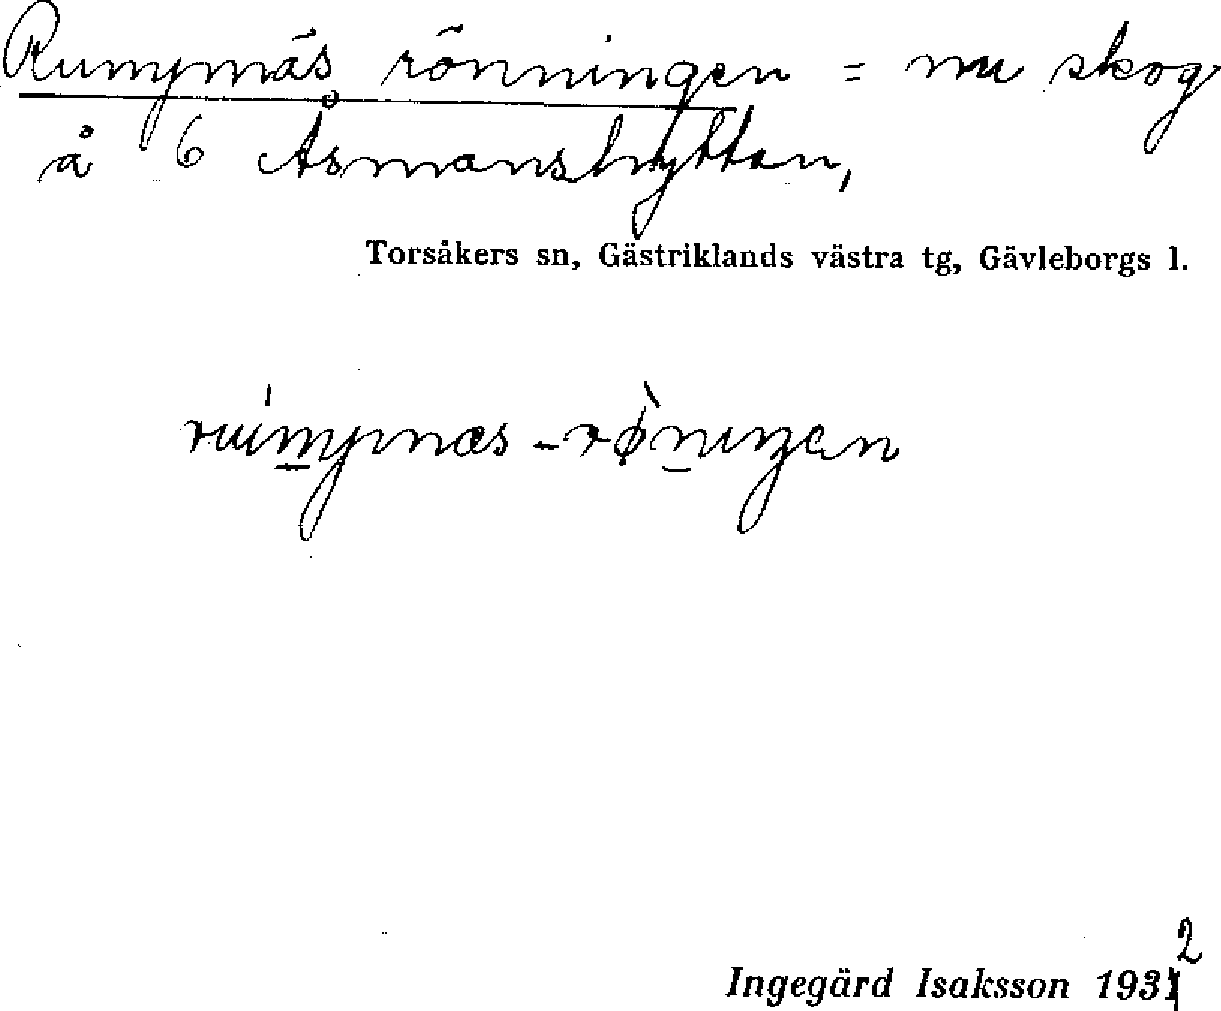 Rumpnäs rönningen = nu skog
å 6 Åsmanshyttan,
Torsåkers sn, Gästriklands västra tg, Gävleborgs l.
Ingegärd Isaksson 1932